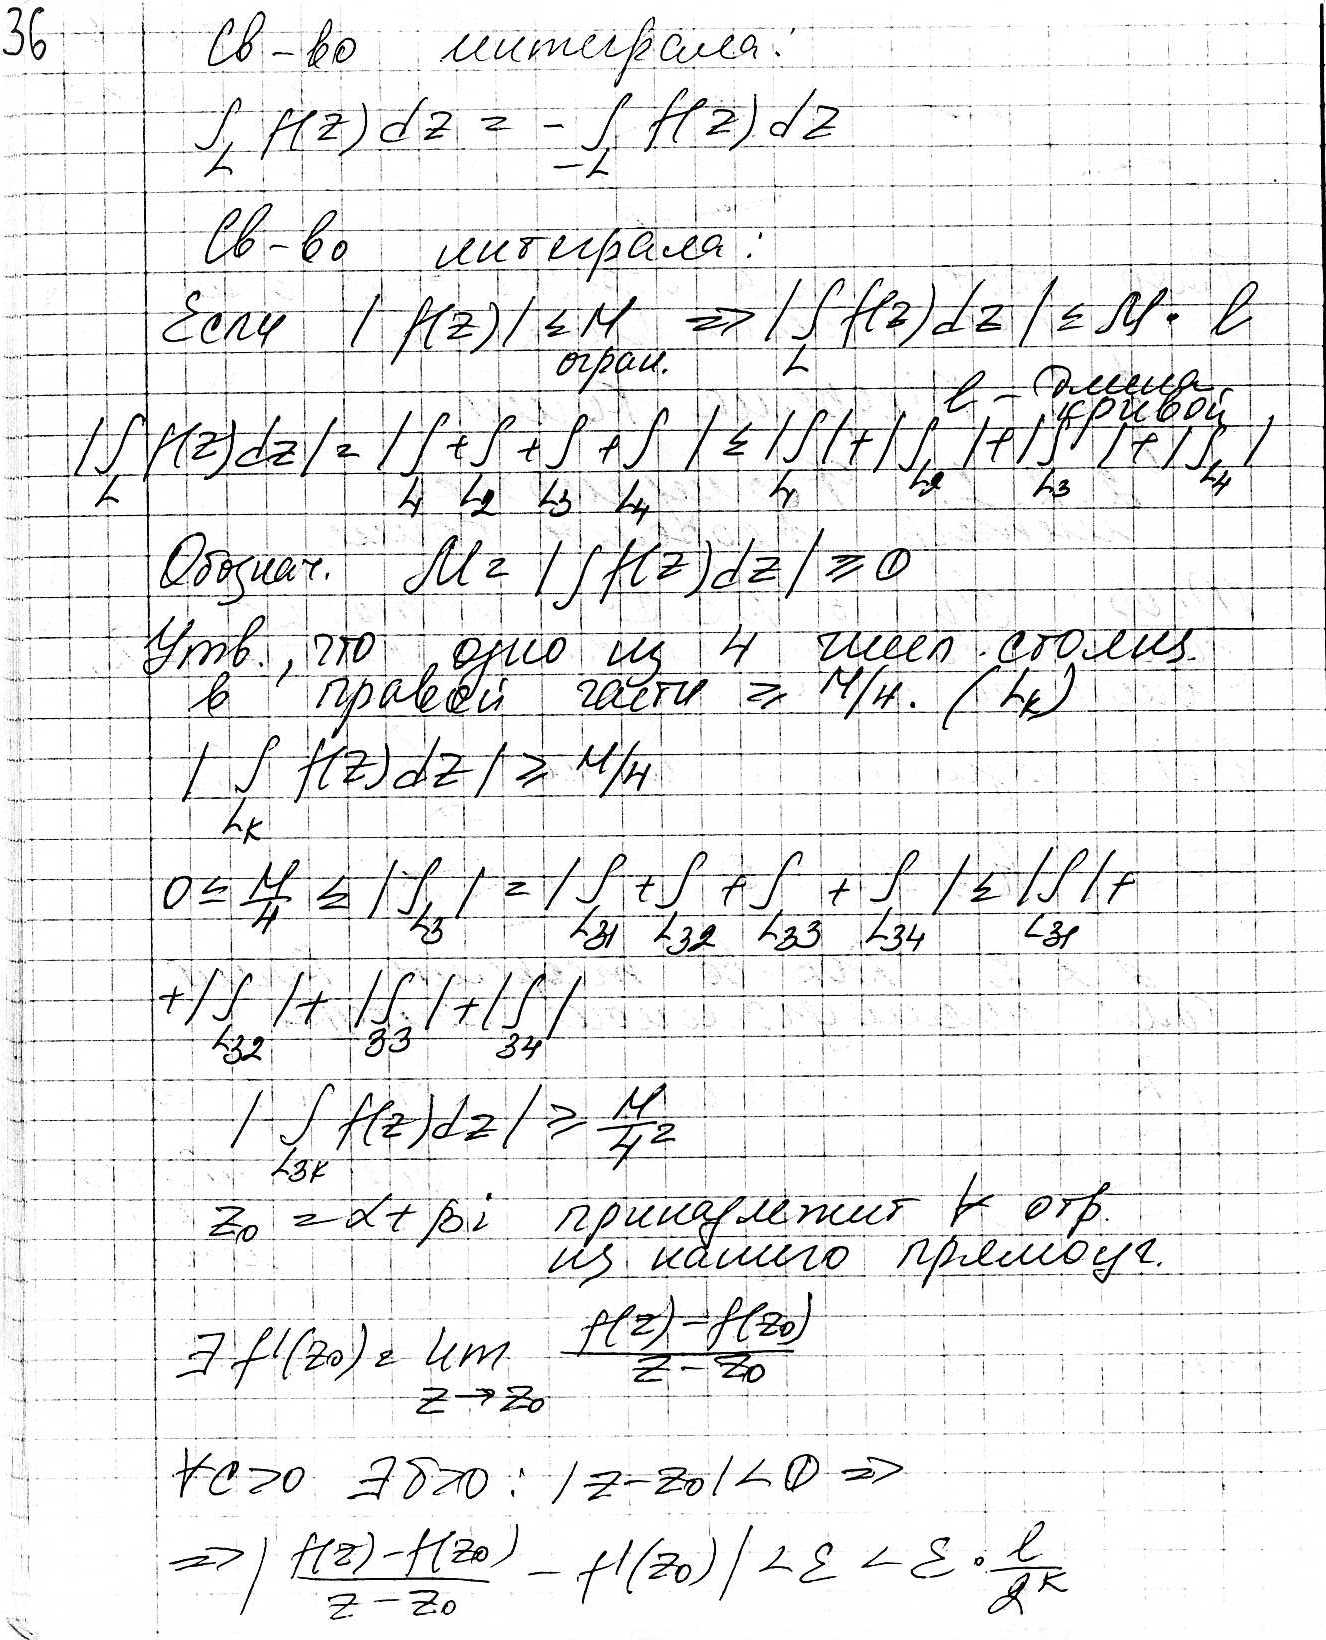 36
Св-во интеграла:
∫_L f(z)dz = - ∫_{-L} f(z)dz
Св-во интеграла:
Если |f(z)| ≤ M ⇒ |∫_L f(z)dz| ≤ M · l
огран.
l - длина
кривой
|∫_L f(z)dz| = |∫_{L1} + ∫_{L2} + ∫_{L3} + ∫_{L4}| ≤ |∫_{L1}| + |∫_{L2}| + |∫_{L3}| + |∫_{L4}|
Обознач. M = |∫ f(z)dz| ≥ 0
Утв., что одно из 4 чисел
в правой части ≥ M/4. (L_k)
|∫_{L_k} f(z)dz| ≥ M/4
0 ≤ M/4 ≤ |∫_{L3}| = |∫_{L31} + ∫_{L32} + ∫_{L33} + ∫_{L34}| ≤ |∫_{L31}| +
+ |∫_{L32}| + |∫_{33}| + |∫_{34}|
|∫_{L3k} f(z)dz| ≥ M/4²
z₀ = α + βi принадлежит ∀ отр.
из нашего прямоуг.
∃ f'(z₀) = lim_{z→z₀} (f(z) - f(z₀))/(z - z₀)
∀ε > 0 ∃ δ > 0 : |z - z₀| < ⇒
⇒ |(f(z) - f(z₀))/(z - z₀) - f'(z₀)| < ε < ε · l/2^k